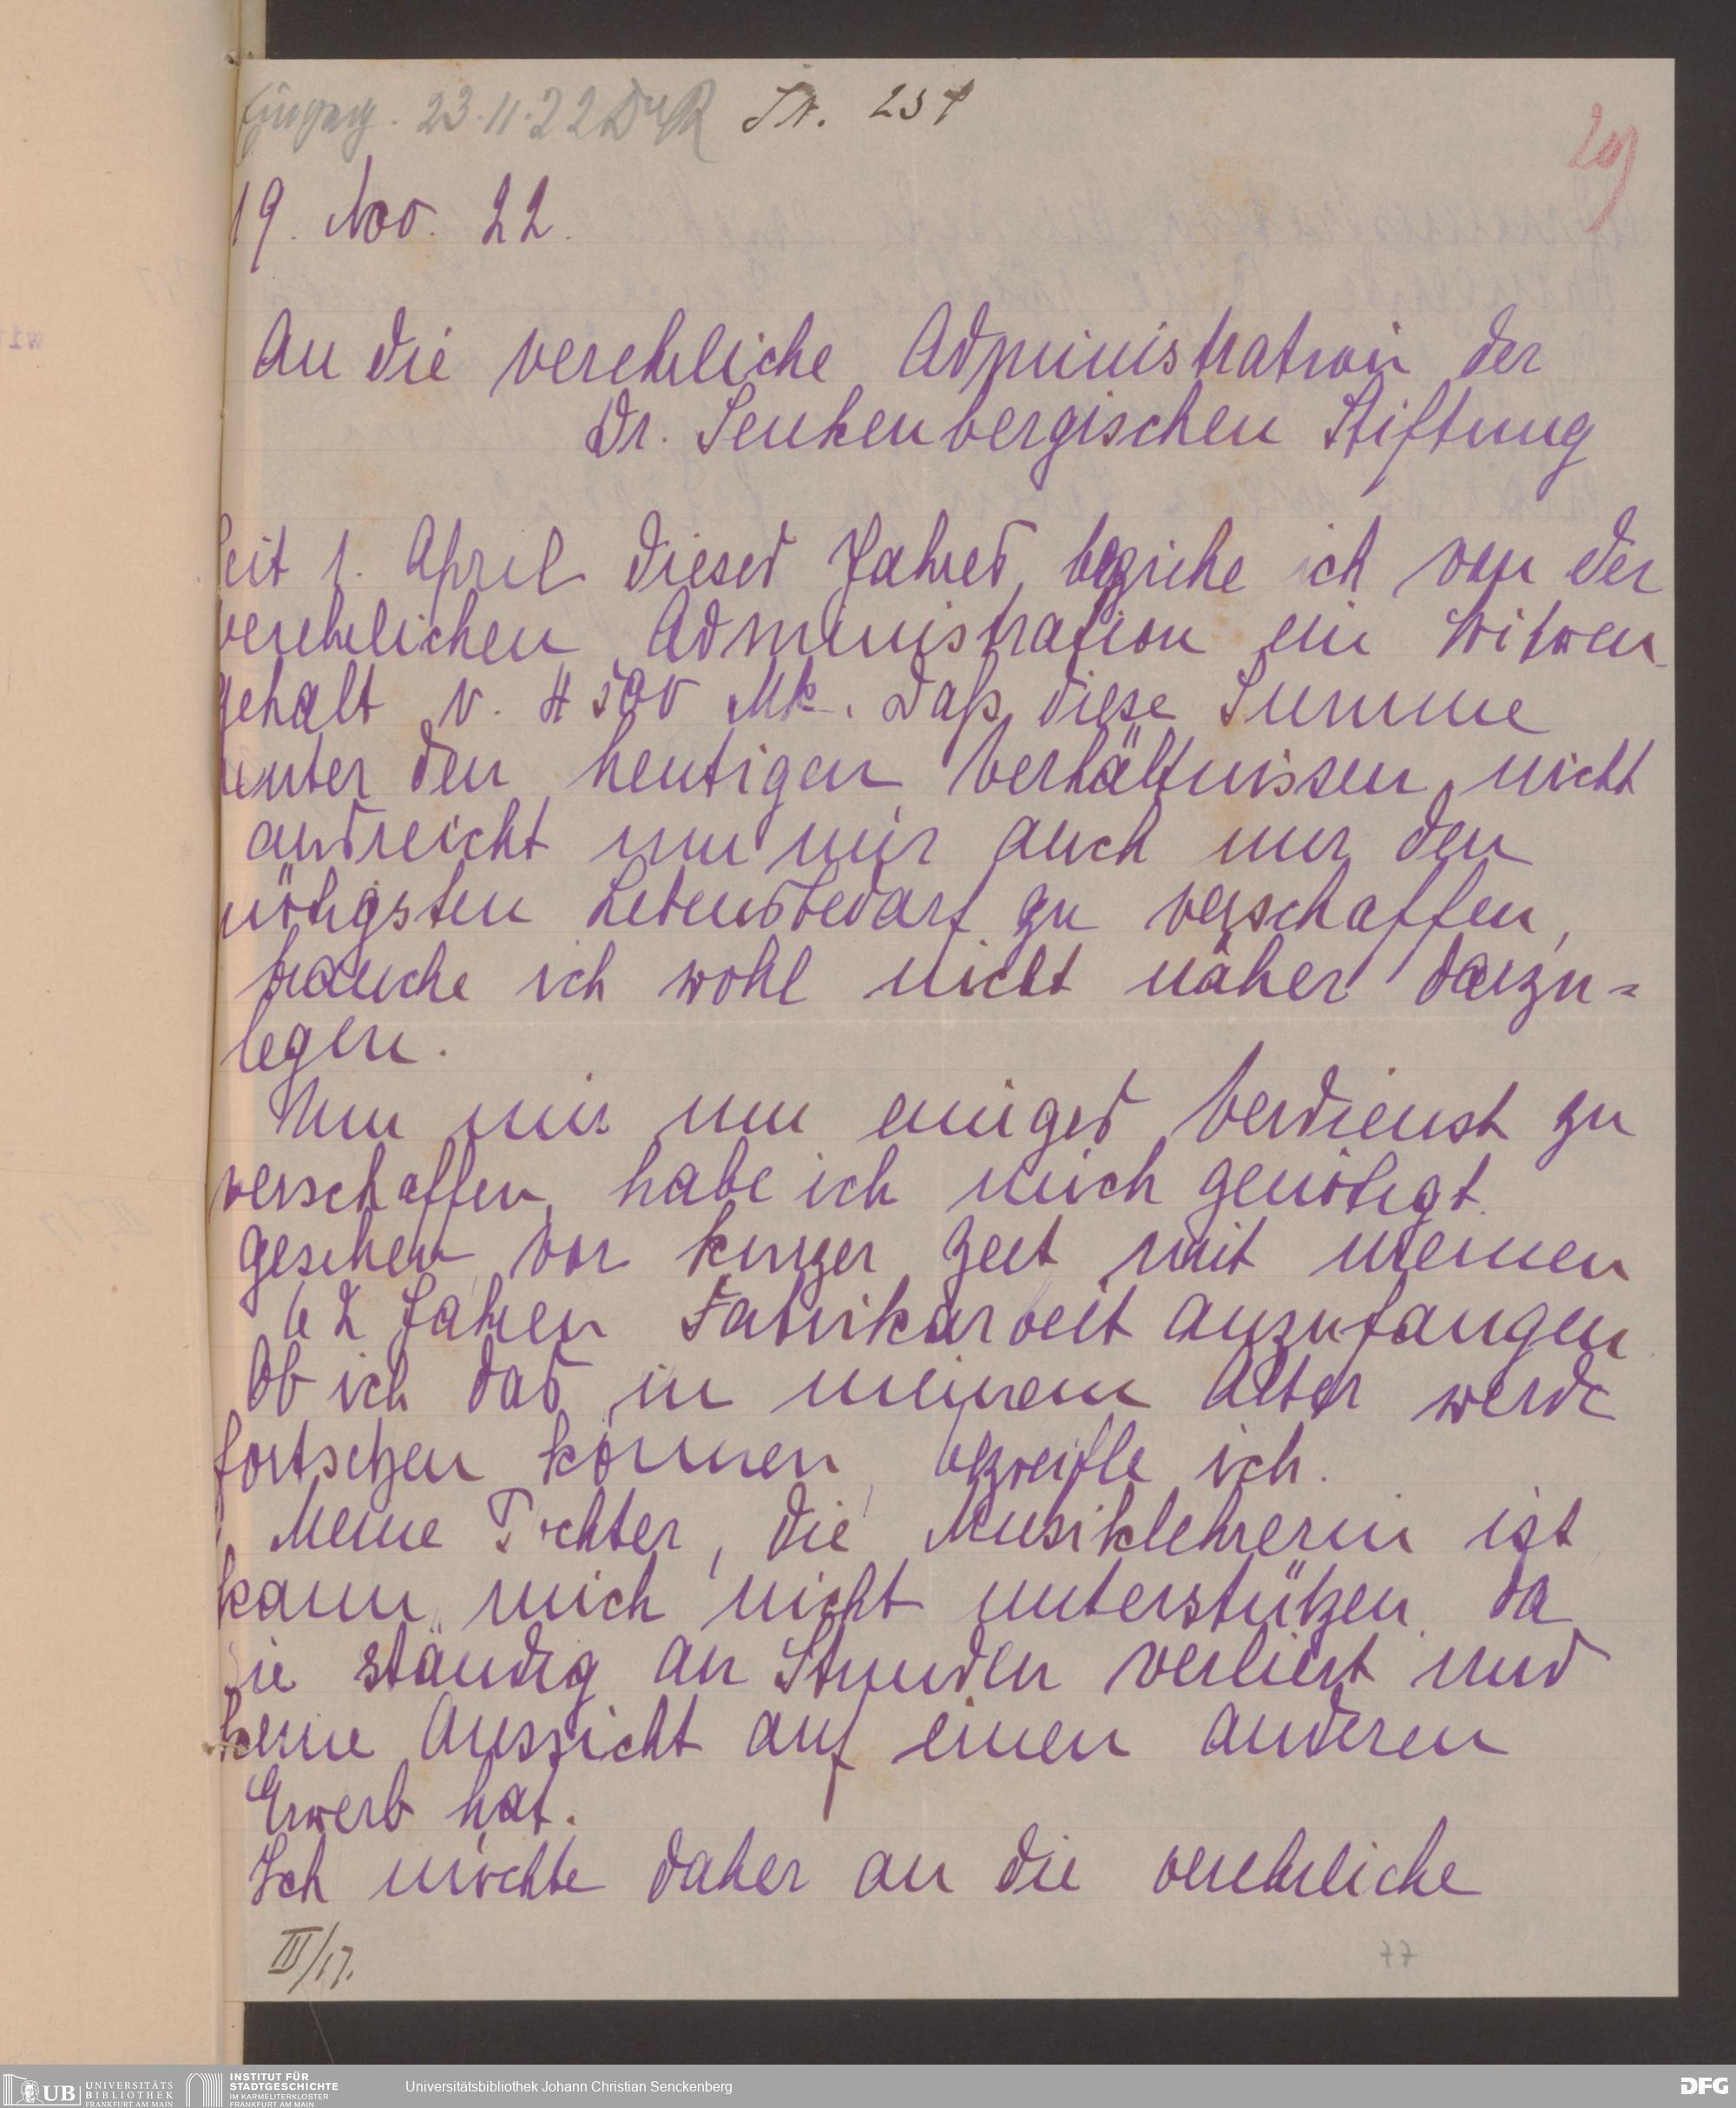 Eingang. 23.11.22 DrR Tr. 251
19. Nov. 22.
An die verehrliche Administration der
Dr. Senkenbergischen Stiftung
Seit 1. April dieses Jahres, beziehe ich von der
verehrlichen Administration ein Witwen-
gehalt v. 4500 Mk. Daß diese Summe
unter den heutigen Verhältnissen nicht
ausreicht um mir auch nur den
nötigsten Lebensbedarf zu verschaffen,
brauche ich wohl nicht näher darzu=
legen.
Um mir nun einiges Verdienst zu
verschaffen, habe ich mich genötigt
gesehen vor kurzer Zeit mit meinen
62 Jahren Fabrikarbeit anzufangen.
Ob ich das in meinem Alter werde
fortsetzen können, bezweifle ich.
Meine Tochter, die Musiklehrerin ist,
kann mich nicht unterstützen, da
sie ständig an Stunden verliert und
keine Aussicht auf einen anderen
Erwerb hat.
Ich möchte daher an die verehrliche
III/17.
77
UB UNIVERSITÄTS
BIBLIOTHEK
FRANKFURT AM MAIN
INSTITUT FÜR
STADTGESCHICHTE
IM KARMELITERKLOSTER
FRANKFURT AM MAIN
Universitätsbibliothek Johann Christian Senckenberg
DFG